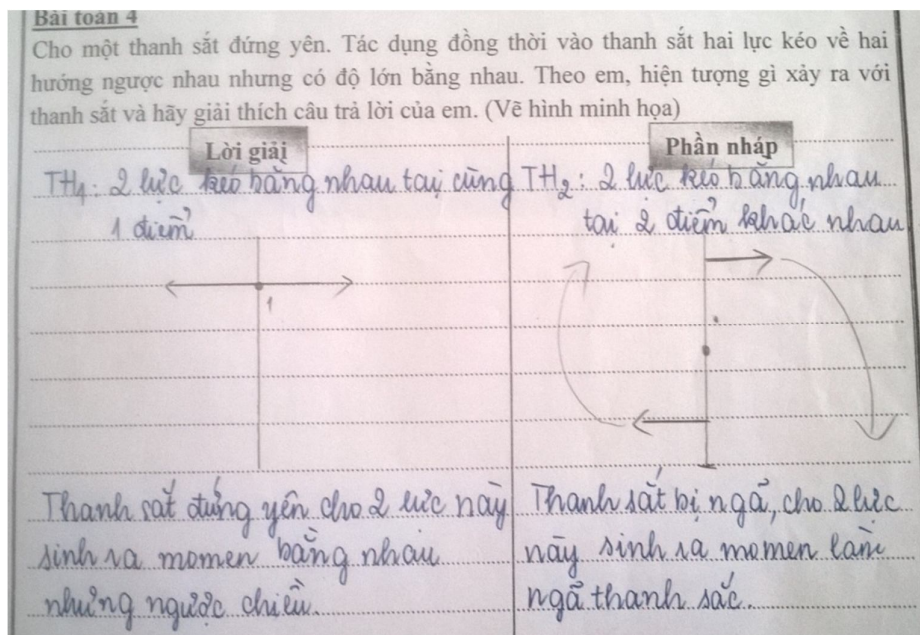 Bài toán 4
Cho một thanh sắt đứng yên. Tác dụng đồng thời vào thanh sắt hai lực kéo về hai
hướng ngược nhau nhưng có độ lớn bằng nhau. Theo em, hiện tượng gì xảy ra với
thanh sắt và hãy giải thích câu trả lời của em. (Vẽ hình minh họa)
Lời giải
TH1: 2 lực kéo bằng nhau tại cùng
1 điểm
1
Thanh sắt đứng yên cho 2 lực này
sinh ra momen bằng nhau
nhưng ngược chiều.
Phần nháp
TH2: 2 lực kéo bằng nhau
tại 2 điểm khác nhau
Thanh sắt bị ngã, cho 2 lực
này sinh ra momen làm
ngã thanh sắc.